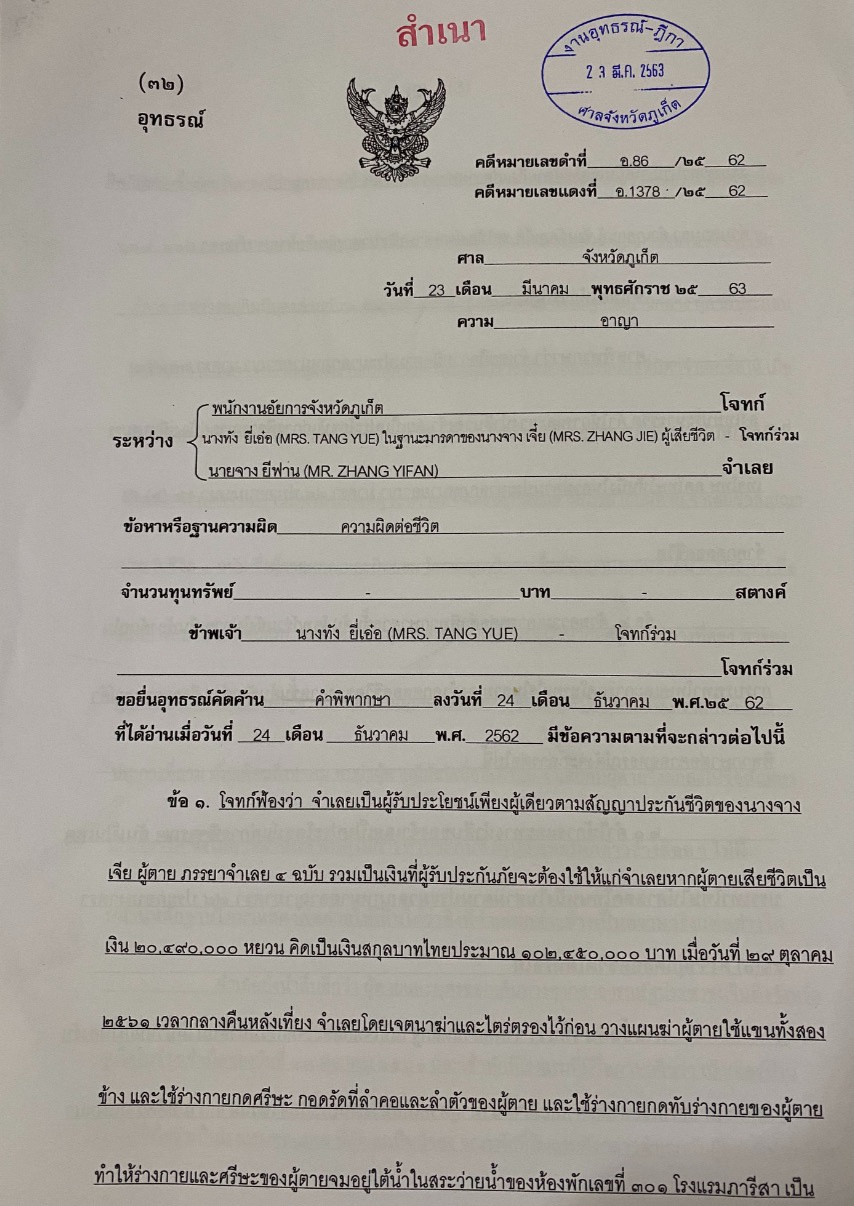 สำเนา
งานอุทธรณ์-ฎีกา
23 มี.ค. 2563
ศาลจังหวัดภูเก็ต
(๓๒)
อุทธรณ์
คดีหมายเลขดำที่ อ.86 /๒๕ 62
คดีหมายเลขแดงที่ อ.1378 /๒๕ 62
ศาล จังหวัดภูเก็ต
วันที่ 23 เดือน มีนาคม พุทธศักราช ๒๕ 63
ความ อาญา
พนักงานอัยการจังหวัดภูเก็ต โจทก์
ระหว่าง นางทัง ยี่เอ๋อ (MRS. TANG YUE) ในฐานะมารดาของนางจาง เจี๋ย (MRS. ZHANG JIE) ผู้เสียชีวิต - โจทก์ร่วม
นายจาง ยีฟาน (MR. ZHANG YIFAN) จำเลย
ข้อหาหรือฐานความผิด ความผิดต่อชีวิต
จำนวนทุนทรัพย์ - บาท - สตางค์
ข้าพเจ้า นางทัง ยี่เอ๋อ (MRS. TANG YUE) - โจทก์ร่วม
โจทก์ร่วม
ขอยื่นอุทธรณ์คัดค้าน คำพิพากษา ลงวันที่ 24 เดือน ธันวาคม พ.ศ.๒๕ 62
ที่ได้อ่านเมื่อวันที่ 24 เดือน ธันวาคม พ.ศ. 2562 มีข้อความตามที่จะกล่าวต่อไปนี้
ข้อ ๑. โจทก์ฟ้องว่า จำเลยเป็นผู้รับประโยชน์เพียงผู้เดียวตามสัญญาประกันชีวิตของนางจาง
เจี๋ย ผู้ตาย ภรรยาจำเลย ๔ ฉบับ รวมเป็นเงินที่ผู้รับประกันภัยจะต้องใช้ให้แก่จำเลยหากผู้ตายเสียชีวิตเป็น
เงิน ๒๐,๔๙๐,๐๐๐ หยวน คิดเป็นเงินสกุลบาทไทยประมาณ ๑๐๒,๔๕๐,๐๐๐ บาท เมื่อวันที่ ๒๙ ตุลาคม
๒๕๖๑ เวลากลางคืนหลังเที่ยง จำเลยโดยเจตนาฆ่าและไตร่ตรองไว้ก่อน วางแผนฆ่าผู้ตายใช้แขนทั้งสอง
ข้าง และใช้ร่างกายกดศรีษะ กอดรัดที่ลำคอและลำตัวของผู้ตาย และใช้ร่างกายกดทับร่างกายของผู้ตาย
ทำให้ร่างกายและศรีษะของผู้ตายจมอยู่ใต้น้ำในสระว่ายน้ำของห้องพักเลขที่ ๓๐๑ โรงแรมภารีสา เป็น